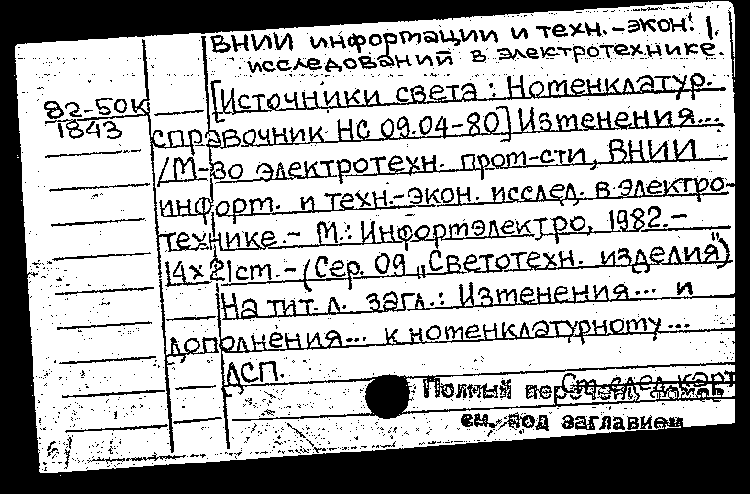 ВНИИ информации и техн.-экон. 1.
исследований в электротехнике.
82-50К
1843
[Источники света : Номенклатур.
справочник НС 09.04-80] Изменения...
/М-во электротехн. пром-сти, ВНИИ
информ. и техн.-экон. исслед. в электро-
технике.- М.: Информэлектро, 1982.-
14х21ст.-(Сер. 09 „Светотехн. изделия")
На тит. л. загл.: Изменения... и
дополнения... к номенклатурному...
ДСП.
См. след. карт
Полный перечень томов
см. под заглавием